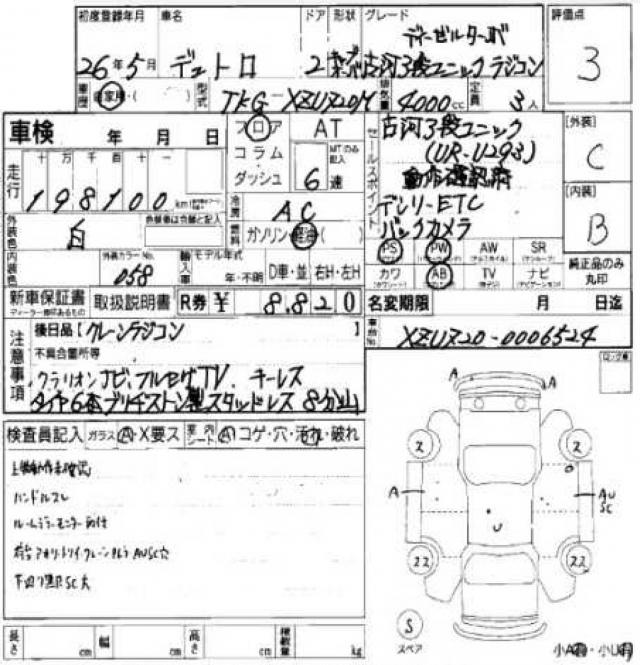 初度登録年月 車名 ドア 形状 グレード 評価点
ディーゼルターボ
26年5月 デュトロ 2 古河3段ユニック ラジコン 3
車歴 自家用・( ) 型式 TKG-XZU720M 排気量 4000cc 定員 3人
車検 年 月 日 フロア AT
コラム・ダッシュ MTのみ記入 6速
走行 十万千百十一
198100 km
セールスポイント 古河3段ユニック
(UR-U293)
動作確認済
デンソーETC
バックカメラ
[外装] C
[内装] B
冷房 AC
燃料 ガソリン・軽油( )
外装色 白 色替車は元色と記入
内装色 外装カラーNo. 058
輸入車 モデル年式 年・不明 D車・並 右H・左H
PS PW AW SR
カワ AB TV ナビ
純正品のみ丸印
新車保証書 取扱説明書 R券 ¥ 8,820
ディーラー印があるもの
名変期限 月 日迄
車台No. XZU720-0006524
注意事項 後日品【クレーンラジコン 】
不具合箇所等
クラリオンナビ、フルセグTV、キーレス
タイヤ6本ブリヂストン製スタッドレス 8分山
検査員記入 ガラス A・X要ス 内シート A コゲ・穴・汚れ・破れ
上物動作未確認
ハンドルスレ
ルームミラーモニター取付
下廻り黒色SC大
A A
2 2
A AU
SC
U
22 22
S
スペア
小A・小U
長さ cm 幅 cm 高さ cm 積載量 kg